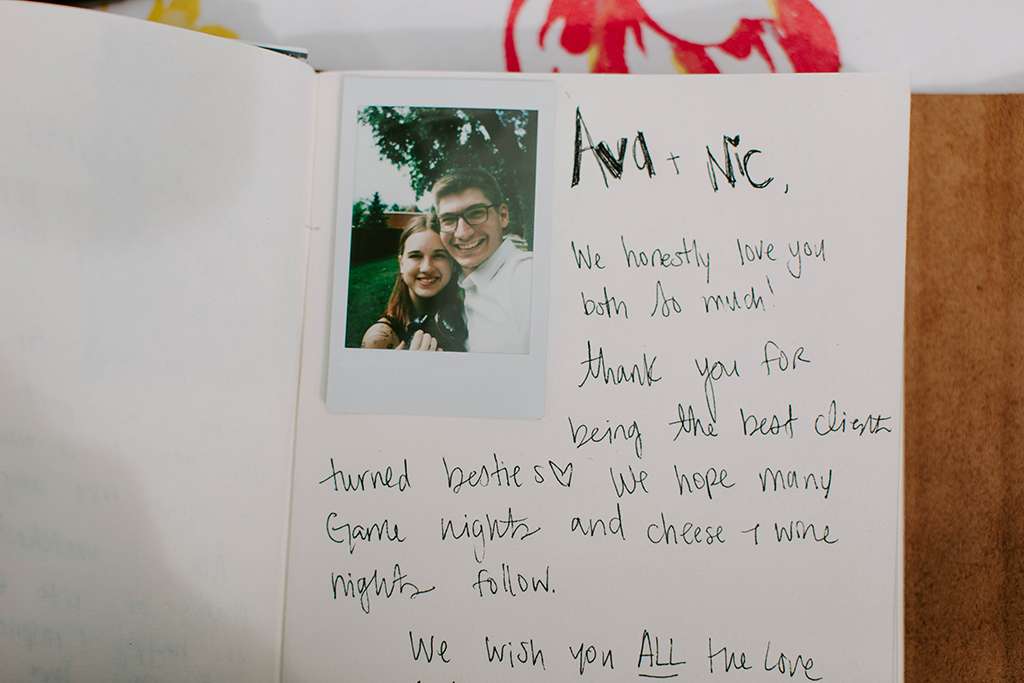 Ava + Nic,
We honestly love you
both so much!
thank you for
being the best clients
turned besties♡ We hope many
Game nights and cheese + wine
nights follow.
We wish you ALL the love